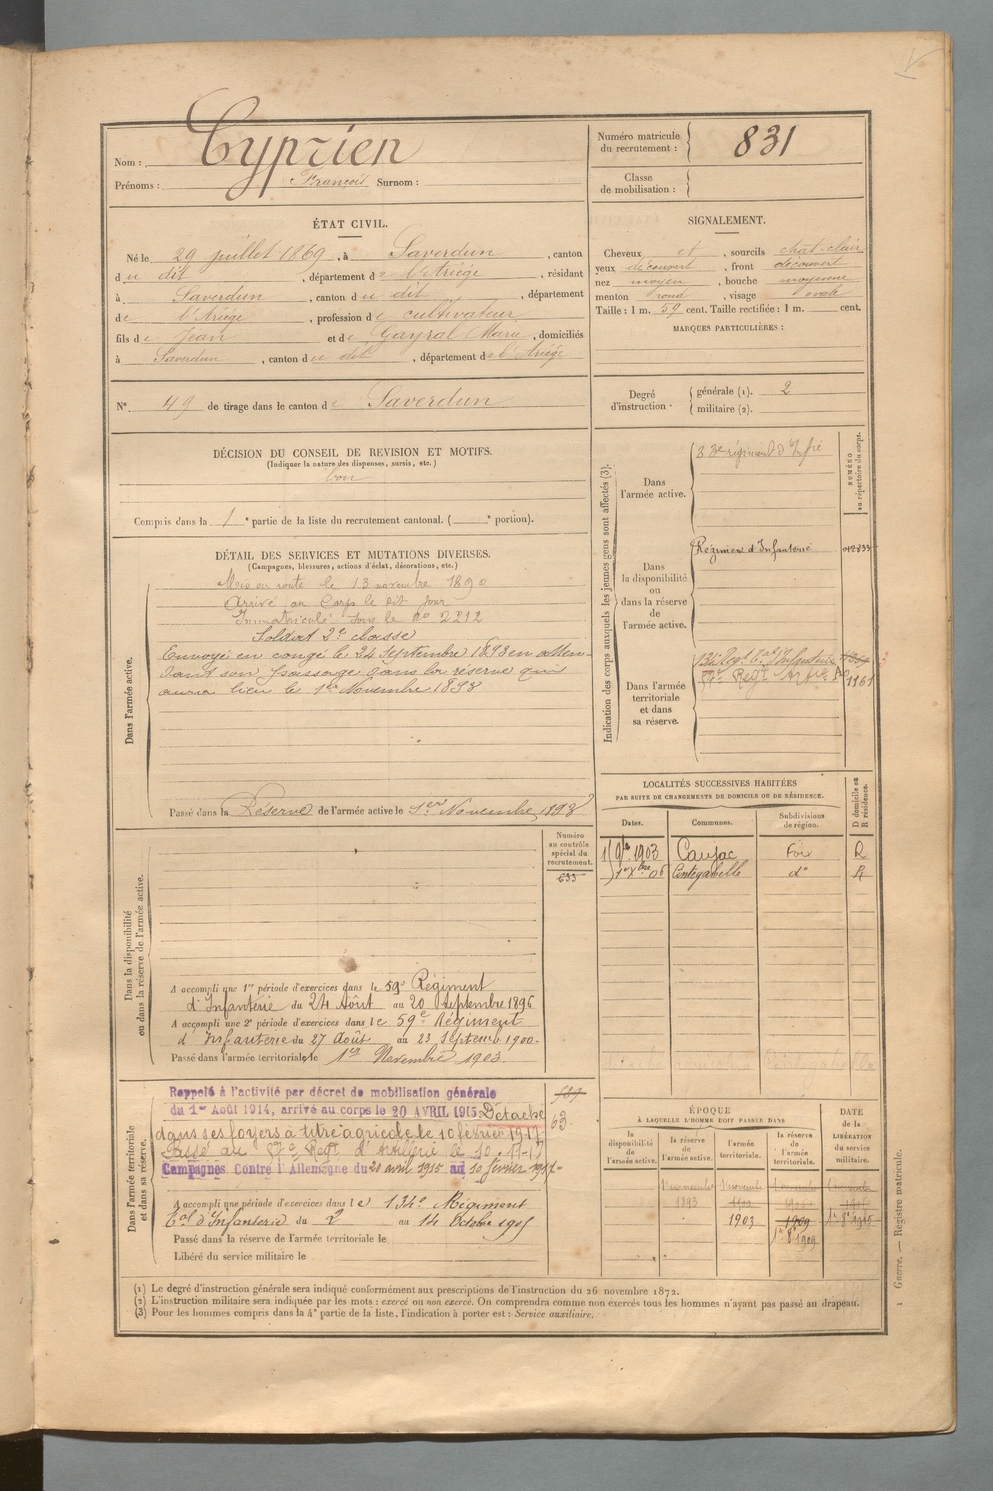 Nom : Cyprien
Prénoms : François Surnom :
Numéro matricule du recrutement : 831
Classe de mobilisation :
ÉTAT CIVIL.
Né le 29 juillet 1869, à Saverdun, canton
du dit, département de l'Ariège, résidant
à Saverdun, canton du dit, département
de l'Ariège, profession de cultivateur
fils de Jean et de Gayral Marie, domiciliés
à Saverdun, canton du dit, département de l'Ariège
N° 49 de tirage dans le canton de Saverdun
SIGNALEMENT.
Cheveux et, sourcils chat-clair
yeux découvert, front découvert
nez moyen, bouche moyenne
menton rond, visage ovale
Taille : 1 m. 59 cent. Taille rectifiée : 1 m. cent.
MARQUES PARTICULIÈRES :
Degré d'instruction. générale (1). 2
militaire (2).
DÉCISION DU CONSEIL DE REVISION ET MOTIFS.
(Indiquer la nature des dispenses, sursis, etc.)
bon
Compris dans la 1e partie de la liste du recrutement cantonal. ( e portion).
DÉTAIL DES SERVICES ET MUTATIONS DIVERSES.
(Campagnes, blessures, actions d'éclat, décorations, etc.)
Dans l'armée active.
Mis en route le 13 novembre 1890
Arrivé au Corps le dit jour
Immatriculé sous le no 2212
Soldat 2e classe
Envoyé en congé le 24 Septembre 1893 en atten-
dant son passage dans la réserve qui
aura lieu le 1er Novembre 1893
Passé dans la Réserve de l'armée active le 1er Novembre 1893
Indication des corps auxquels les jeunes gens sont affectés (3).
NUMÉRO au répertoire du corps.
Dans l'armée active.
83e régiment d'Infie
Dans la disponibilité ou dans la réserve de l'armée active.
Régiment d'Infanterie
Dans l'armée territoriale et dans sa réserve.
Regt Tal d'Infanterie
57e Regt Artie
1161
LOCALITÉS SUCCESSIVES HABITÉES
PAR SUITE DE CHANGEMENTS DE DOMICILE OU DE RÉSIDENCE.
Dates. Communes. Subdivisions de région. D domicile ou R résidence.
1903 Caujac Foix R
Cintegabelle do R
Dans la disponibilité ou dans la réserve de l'armée active.
Numéro au contrôle spécial du recrutement.
633
A accompli une 1re période d'exercices dans le 59e Régiment
d'Infanterie du 24 Août au 20 Septembre 1896
A accompli une 2e période d'exercices dans le 59e Régiment
d'Infanterie du 27 Août au 23 Septemb 1900.
Passé dans l'armée territoriale le 1er Novembre 1903.
Dans l'armée territoriale et dans sa réserve.
Rappelé à l'activité par décret de mobilisation générale
du 1er Août 1914, arrivé au corps le 20 AVRIL 1915 Détaché
dans ses foyers à titre agricole le 10 février 1917
Passé au 57e Regt d'Artillerie le 10-11-17
Campagnes Contre l'Allemagne du 21 avril 1915 au 10 février 1917
63
A accompli une période d'exercices dans le 134e Régiment
Tal d'Infanterie du 2 au 14 Octobre 1905
Passé dans la réserve de l'armée territoriale le
Libéré du service militaire le
ÉPOQUE
À LAQUELLE L'HOMME DOIT PASSER DANS
la disponibilité de l'armée active. la réserve de l'armée active. l'armée territoriale. la réserve de l'armée territoriale.
DATE de la LIBÉRATION du service militaire.
1er novembre 1893
1903
1909
(1) Le degré d'instruction générale sera indiqué conformément aux prescriptions de l'instruction du 26 novembre 1872.
(2) L'instruction militaire sera indiquée par les mots : exercé ou non exercé. On comprendra comme non exercés tous les hommes n'ayant pas passé au drapeau.
(3) Pour les hommes compris dans la 4e partie de la liste, l'indication à porter est : Service auxiliaire.
1 Guerre. — Registre matricule.